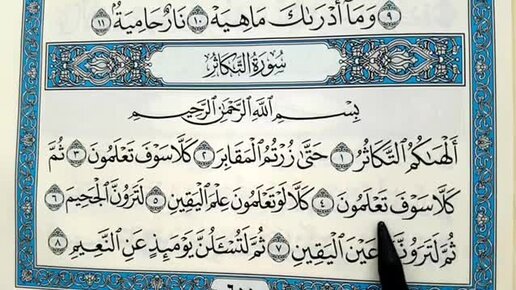 ٩ وَمَآ أَدْرَىٰكَ مَاهِيَهْ ١٠ نَارٌ حَامِيَةٌۢ ١١
سُورَةُ التَّكَاثُرِ
بِسْمِ ٱللَّهِ ٱلرَّحْمَٰنِ ٱلرَّحِيمِ
أَلْهَىٰكُمُ ٱلتَّكَاثُرُ ١ حَتَّىٰ زُرْتُمُ ٱلْمَقَابِرَ ٢ كَلَّا سَوْفَ تَعْلَمُونَ ٣ ثُمَّ
كَلَّا سَوْفَ تَعْلَمُونَ ٤ كَلَّا لَوْ تَعْلَمُونَ عِلْمَ ٱلْيَقِينِ ٥ لَتَرَوُنَّ ٱلْجَحِيمَ ٦
ثُمَّ لَتَرَوُنَّ عَيْنَ ٱلْيَقِينِ ٧ ثُمَّ لَتُسْـَٔلُنَّ يَوْمَئِذٍ عَنِ ٱلنَّعِيمِ ٨
٦٠٠